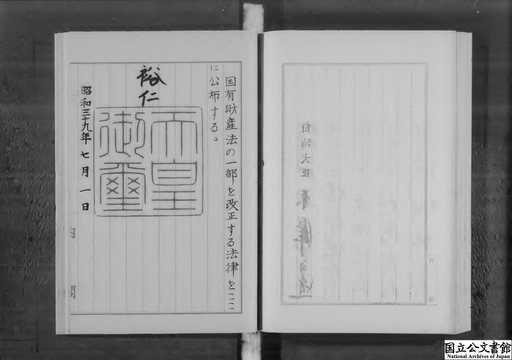 国有財産法の一部を改正する法律をここ
に公布する。
裕仁
天皇
御璽
昭和三十九年七月一日
内閣
自治大臣
国立公文書館
National Archives of Japan